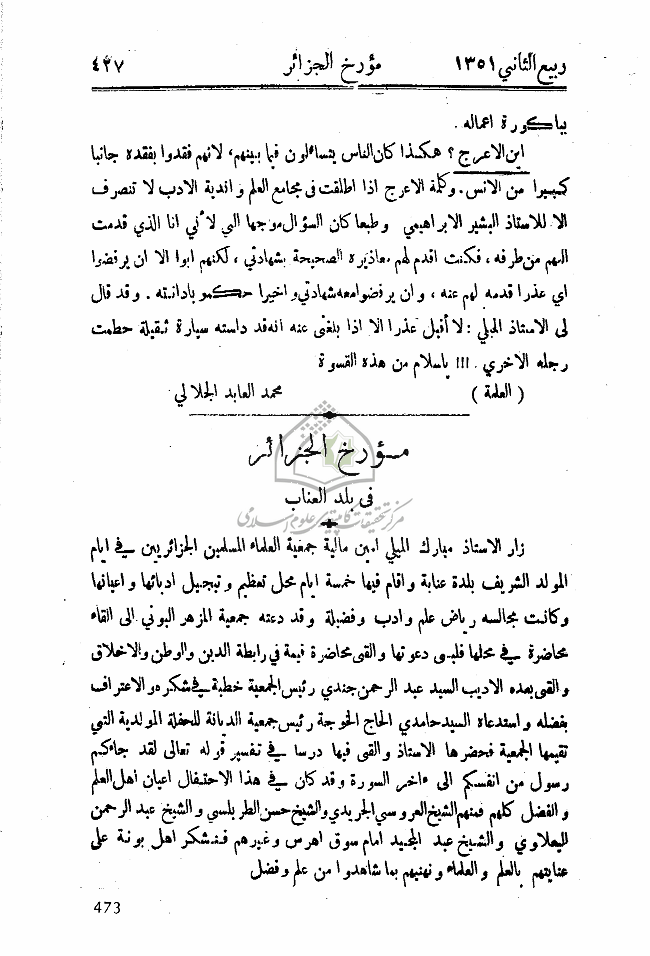 ربيع الثاني ١٣٥١ مؤرخ الجزائر ٤٢٧
بباكورة اعماله .
ابن الاعرج ؟ هكذا كان الناس يتساءلون فيما بينهم، لانهم فقدوا بفقده جانبا
كبيرا من الانس. وكلمة الاعرج اذا اطلقت فى مجامع العلم و اندية الادب لا تنصرف
الا للاستاذ البشير الابراهيمي وطبعا كان السؤال موجها الي لأني انا الذي قدمت
اليهم من طرفه ، فكنت اقدم لهم معاذيره الصحيحة بشهادتي ، لكنهم ابوا الا ان يرفضوا
اي عذر اقدمه لهم عنه ، و ان يرفضوا معه شهادتي و اخيرا حكموا بادانته . و قد قال
لى الاستاذ الميلي : لا أقبل عذرا الا اذا بلغنى عنه انه قد داسته سيارة ثقيلة حطمت
رجله الاخرى . !!! ياسلام من هذه القسوة
( العلمة ) محمد العابد الجلالي
مؤرخ الجزائر
فى بلد العناب
مرکز تحقیقات کامپیوتری علوم اسلامی
زار الاستاذ مبارك الميلي امين مالية جمعية العلماء المسلمين الجزائريين فى ايام
المولد الشريف بلدة عنابة و اقام فيها خمسة ايام محل تعظيم و تبجيل ادبائها و اعيانها
وكانت مجالسه رياض علم و ادب و فضيلة وقد دعته جمعية المزهر البوني الى القاء
محاضرة فى محلها فلبى دعوتها والقى محاضرة قيمة في رابطة الدين والوطن والاخلاق
و القى بعده الاديب السيد عبد الرحمن جندي رئيس الجمعية خطبة فى شكره و الاعتراف
بفضله و استدعاه السيد حامدي الحاج الخوجة رئيس جمعية الديانة للحفلة المولدية التي
تقيمها الجمعية فحضرها الاستاذ والقى فيها درسا فى تفسير قوله تعالى لقد جاءكم
رسول من انفسكم الى ءاخر السورة و قد كان فى هذا الاحتفال اعيان اهل العلم
و الفضل كلهم فمنهم الشيخ العروسي الجريدي و الشيخ حسن الطرابلسي و الشيخ عبد الرحمن
اليعلاوي و الشيخ عبد المجيد امام سوق اهرس و غيرهم فنشكر اهل بونة على
عنايتهم بالعلم و العلماء و نهنيهم بما شاهدوا من علم و فضل
473